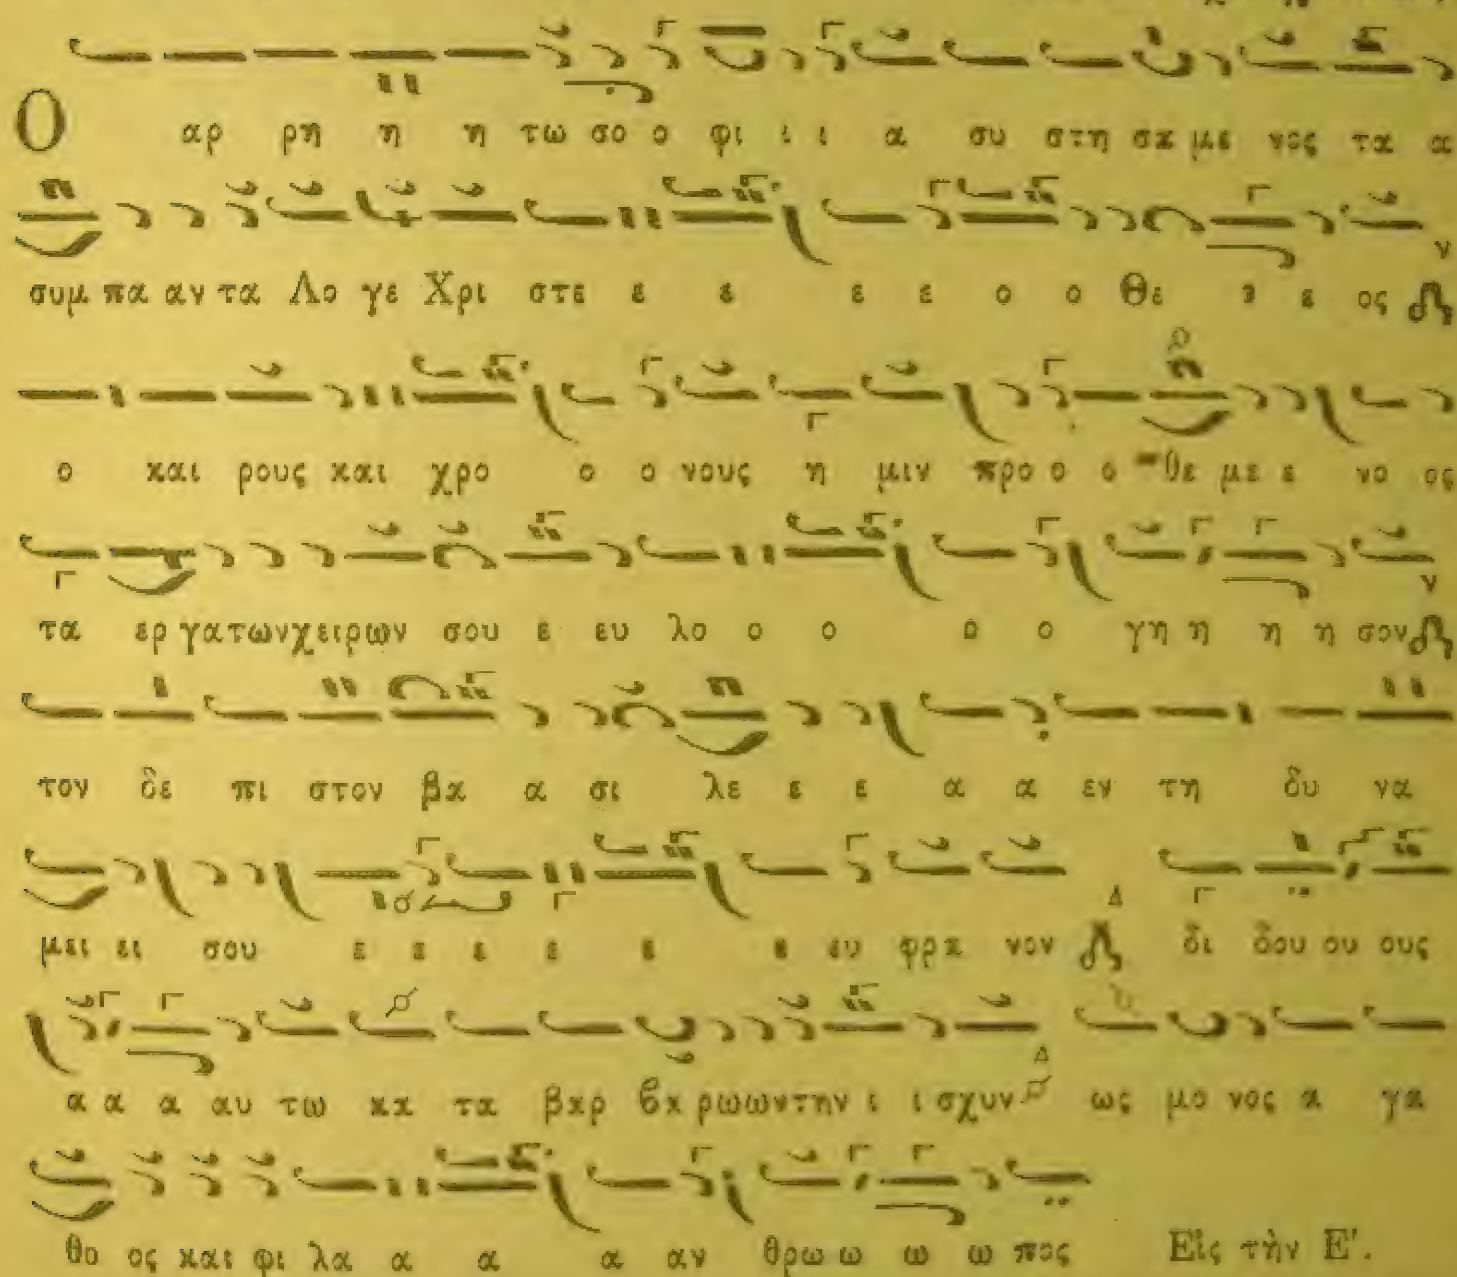 Ο αρ ρη η η τω σο ο φι ι ι α συ στη σα με νος τα α
συμ πα αν τα Λο γε Χρι στε ε ε ε ε ο ο Θε ε ε ος
ο και ρους και χρο ο ο νους η μιν προ ο ο θε με ε νο ος
τα ερ γα των χει ρων σου ε ευ λο ο ο ο ο γη η η η σον
τον δε πι στον βα α σι λε ε ε α α εν τη δυ να
μει ει σου ε ε ε ε ε ε ευ φρα νον δι δου ου ους
α α α αυ τω κα τα βαρ βα ρω ων την ι ι σχυν ως μο νος α γα
θο ος και φι λα α α α αν θρω ω ω ω πος Εἰς τὴν Ε'.